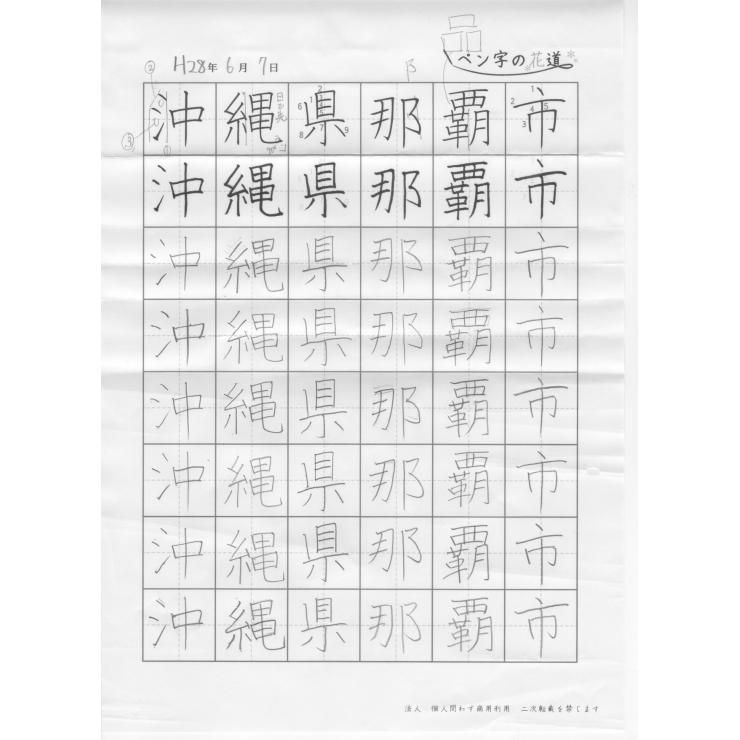 H28年6月7日
ペン字の花道
沖縄県那覇市
沖縄県那覇市
沖縄県那覇市
沖縄県那覇市
沖縄県那覇市
沖縄県那覇市
沖縄県那覇市
沖縄県那覇市
法人 個人問わず商用利用 二次転載を禁じます